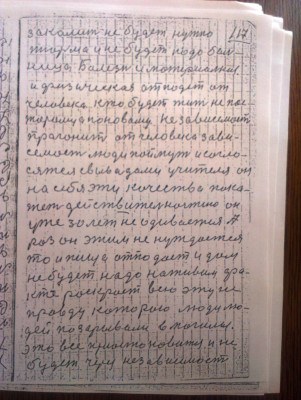 117
закалит не будет нужно
тюрма и не будет надо бол
ница болезн и материалная
и физическая отпадет от
человека кто будет жит не по с
тарому а поновому независимост
прагонит от человека зави-
семост люди поймут и согло-
сятся с выводами учителя он
на себя эти качества пока-
жет действителностию он
уже 30 лет не одевается а
раз он этим не нуждается
то и пища отпадает и дом
не будет надо наживат фа-
кт раскроет всю эту
правду которого люди лю-
дей позарывали в могилу.
это все приостоновит и не
будет чем независимост